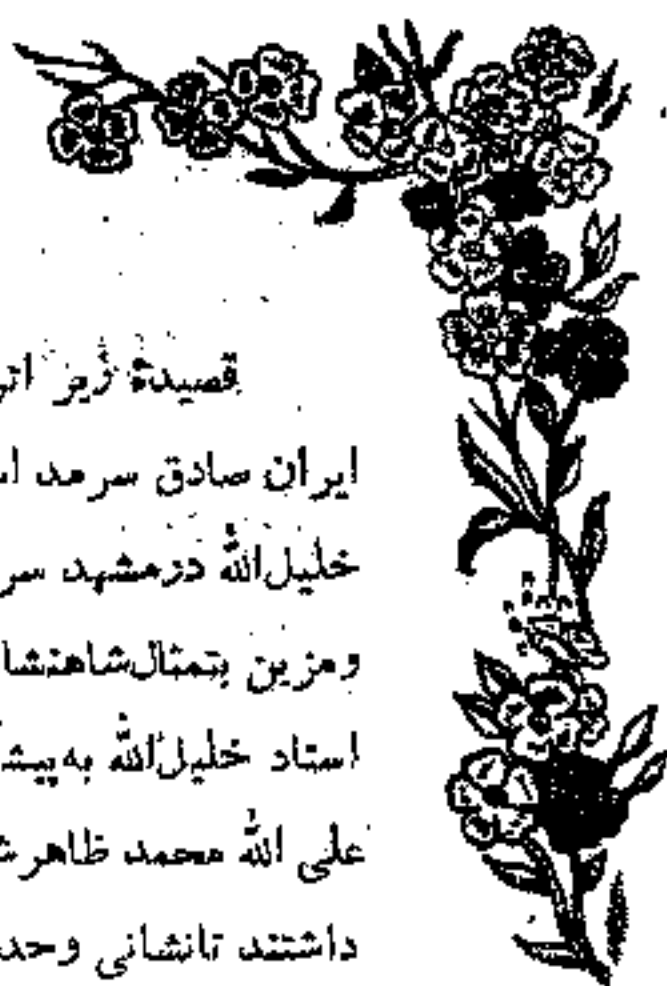 قصیدهٔ زیر اثر
ایران صادق سرمد
خلیل‌الله درمشهد
ومزین بتمثال‌شاهنشا
استاد خلیل‌الله به
علی الله محمد ظاهر
داشتند تانشانی وحد